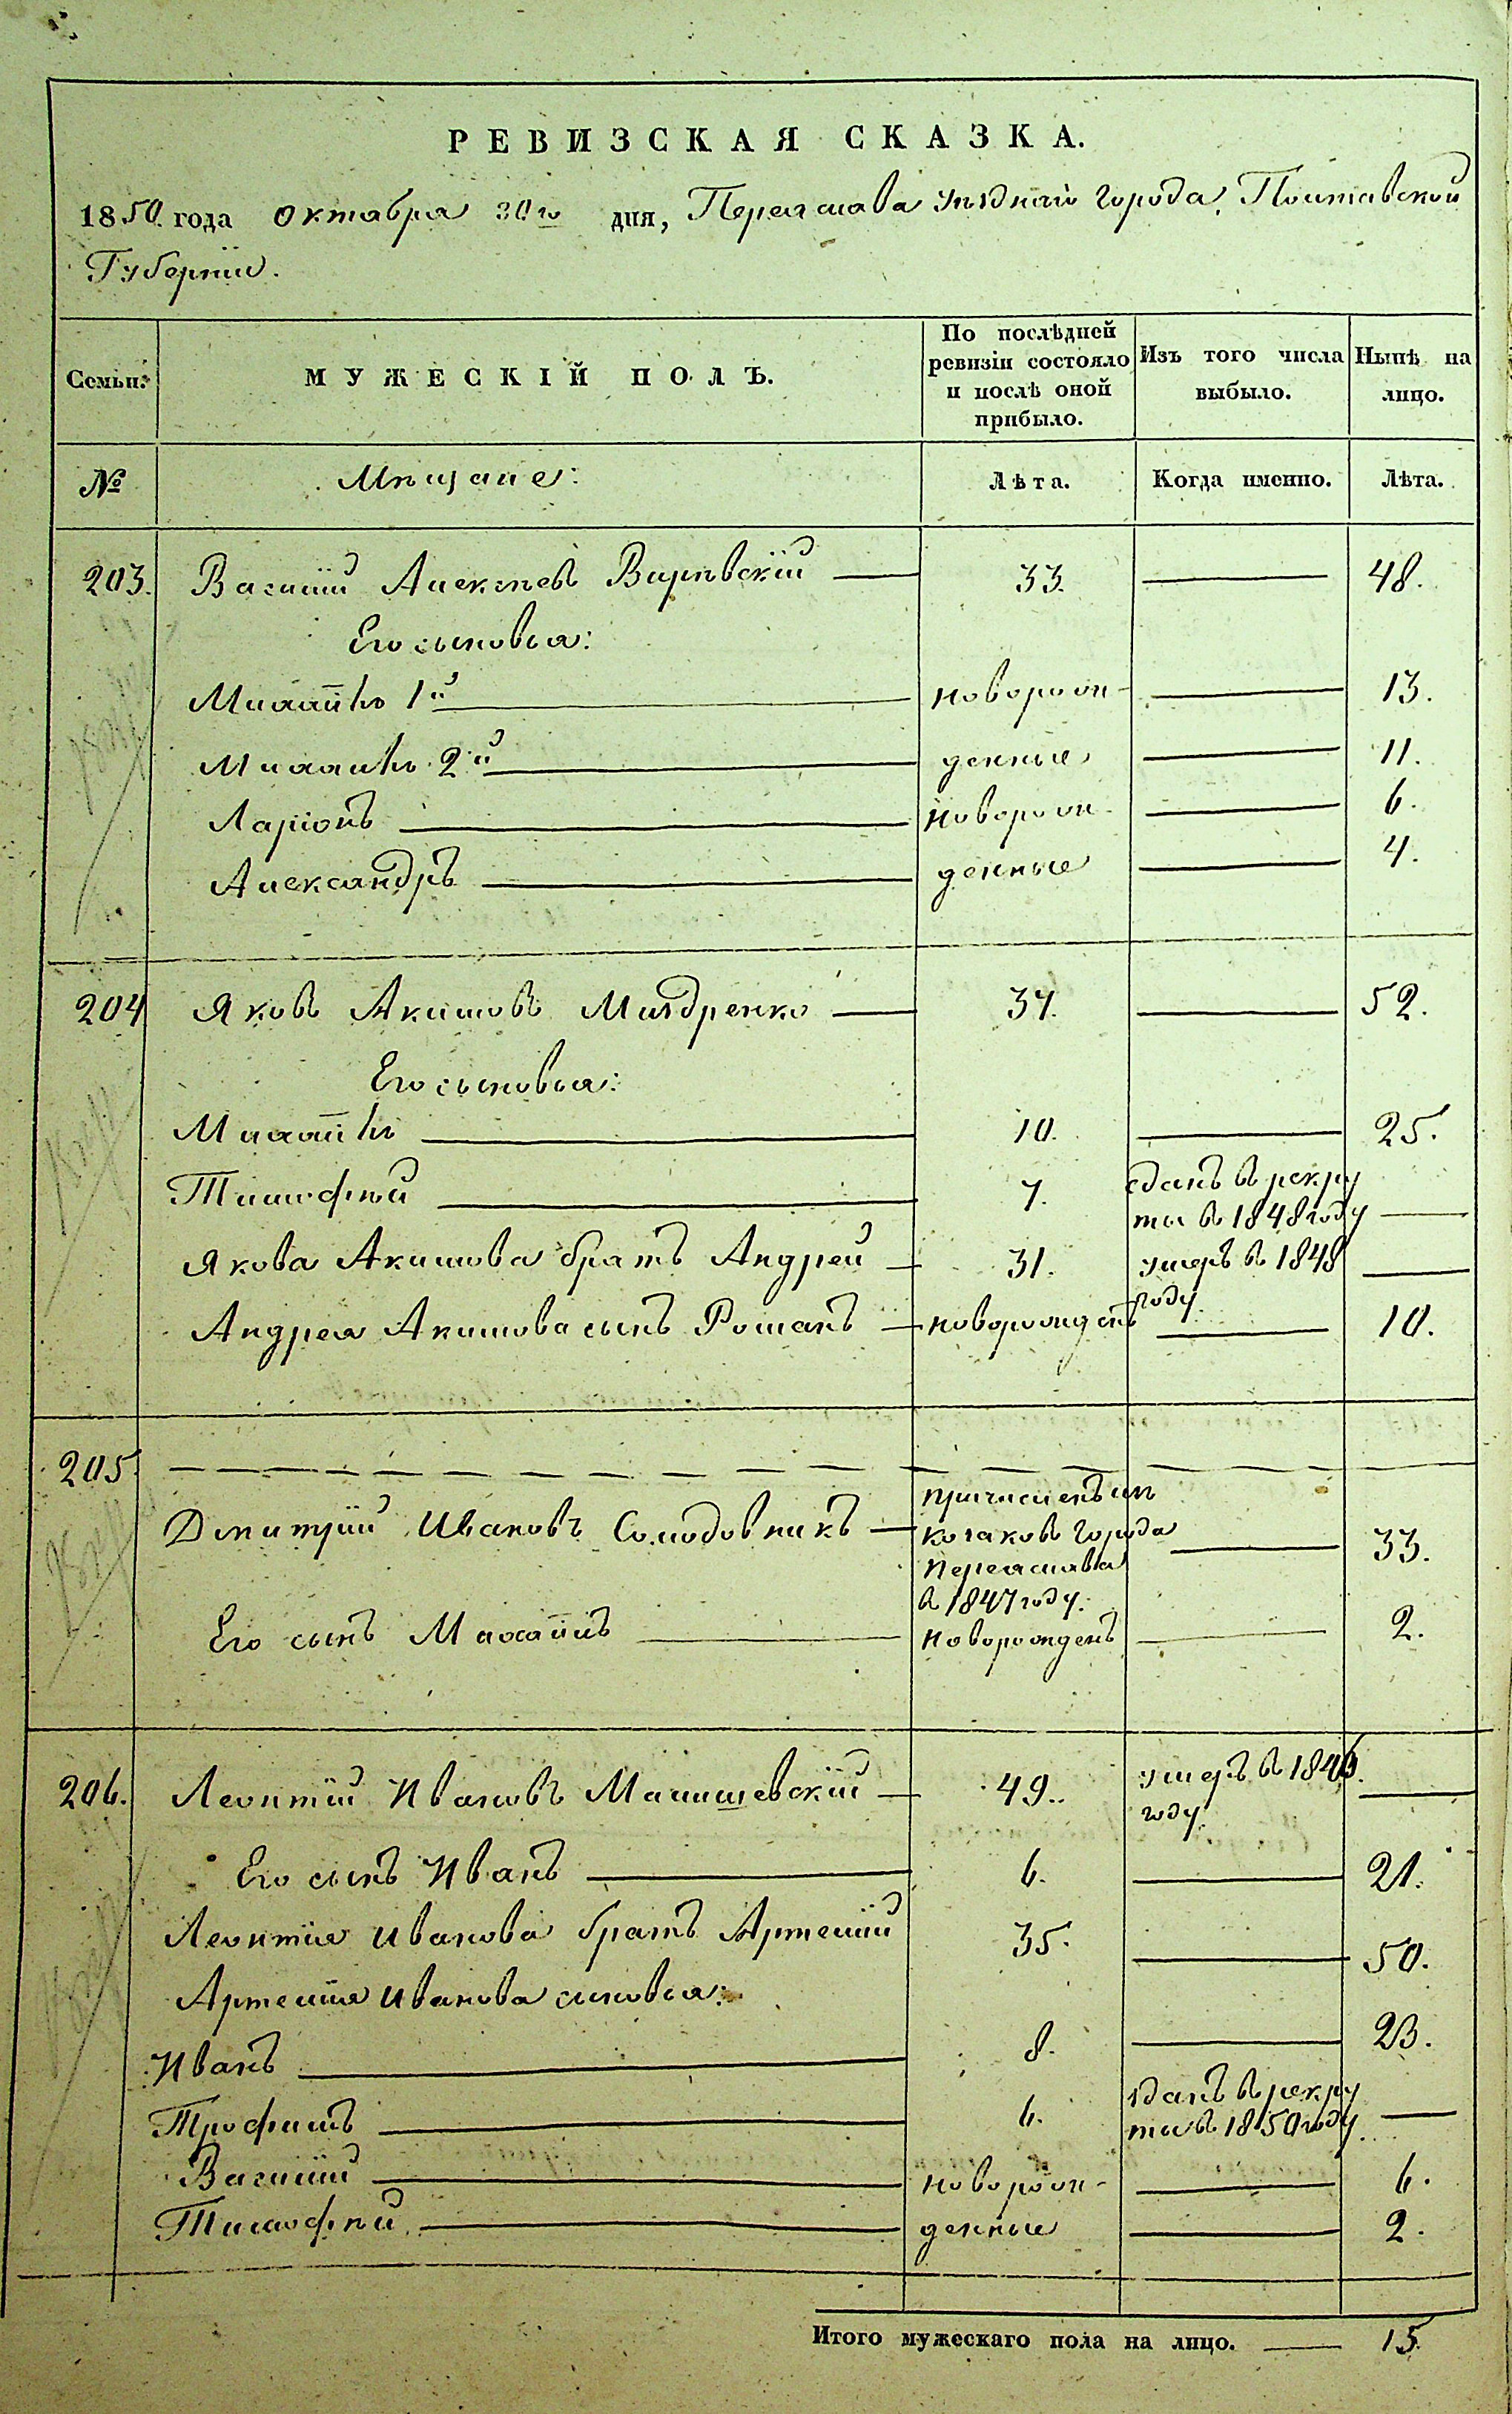 РЕВИЗСКАЯ СКАЗКА.
1850 года октября 30го дня, Переяслава уѣзднаго города, Полтавской
Губерніи.
Семьи.
МУЖЕСКІЙ ПОЛЪ.
По послѣдней
ревизіи состояло
и послѣ оной
прибыло.
Изъ того числа
выбыло.
Нынѣ на
лицо.
№
Мѣщане:
Лѣта.
Когда именно.
Лѣта.
203. Василій Алексѣевъ 33. 48.
Его сыновья:
Михайлъ 1й новорож- 13.
Михаилъ 2й денные 11.
Ларіонъ новорож- 6.
Александръ денные 4.
204 Яковъ Акимовъ 37. 52.
Его сыновья:
Михайлъ 10. 25.
Тимофѣй 7. сданъ в рекру
ты в 1848 году
Якова Акимова братъ Андрей 31. умеръ в 1848
году.
Андрея Акимова сынъ Романъ новорожденъ 10.
205.
Дмитрий Ивановъ Солодовникъ причисленъ изъ
козаковъ города
Переяслава
в 1847 году. 33.
Его сынъ Михайлъ новорожденъ 2.
206. Леонтій Ивановъ Малишевскій 49. умеръ в 1846.
году.
Его сынъ Иванъ 6. 21.
Леонтія Иванова братъ Артемій 35. 50.
Артемія Иванова сыновья:
Иванъ 8. 23.
Трофимъ 6. сданъ в рекру
ты в 1850 году
Василій новорож- 6.
Тимофѣй денные 2.
Итого мужескаго пола на лицо. 15.